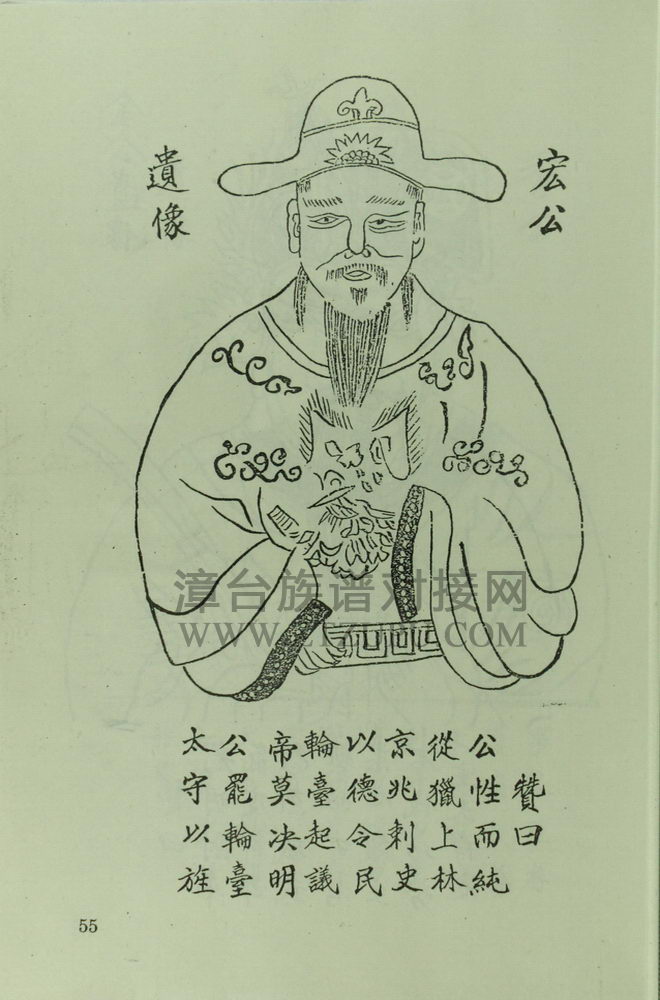 宏公
遺像
漳台族谱对接网
WWW.ZTZUPU.COM
贊曰
公性而純
從獵上林
京兆刺史
以德令民
輪臺起議
帝莫决明
公罷輪臺
太守以旌
55